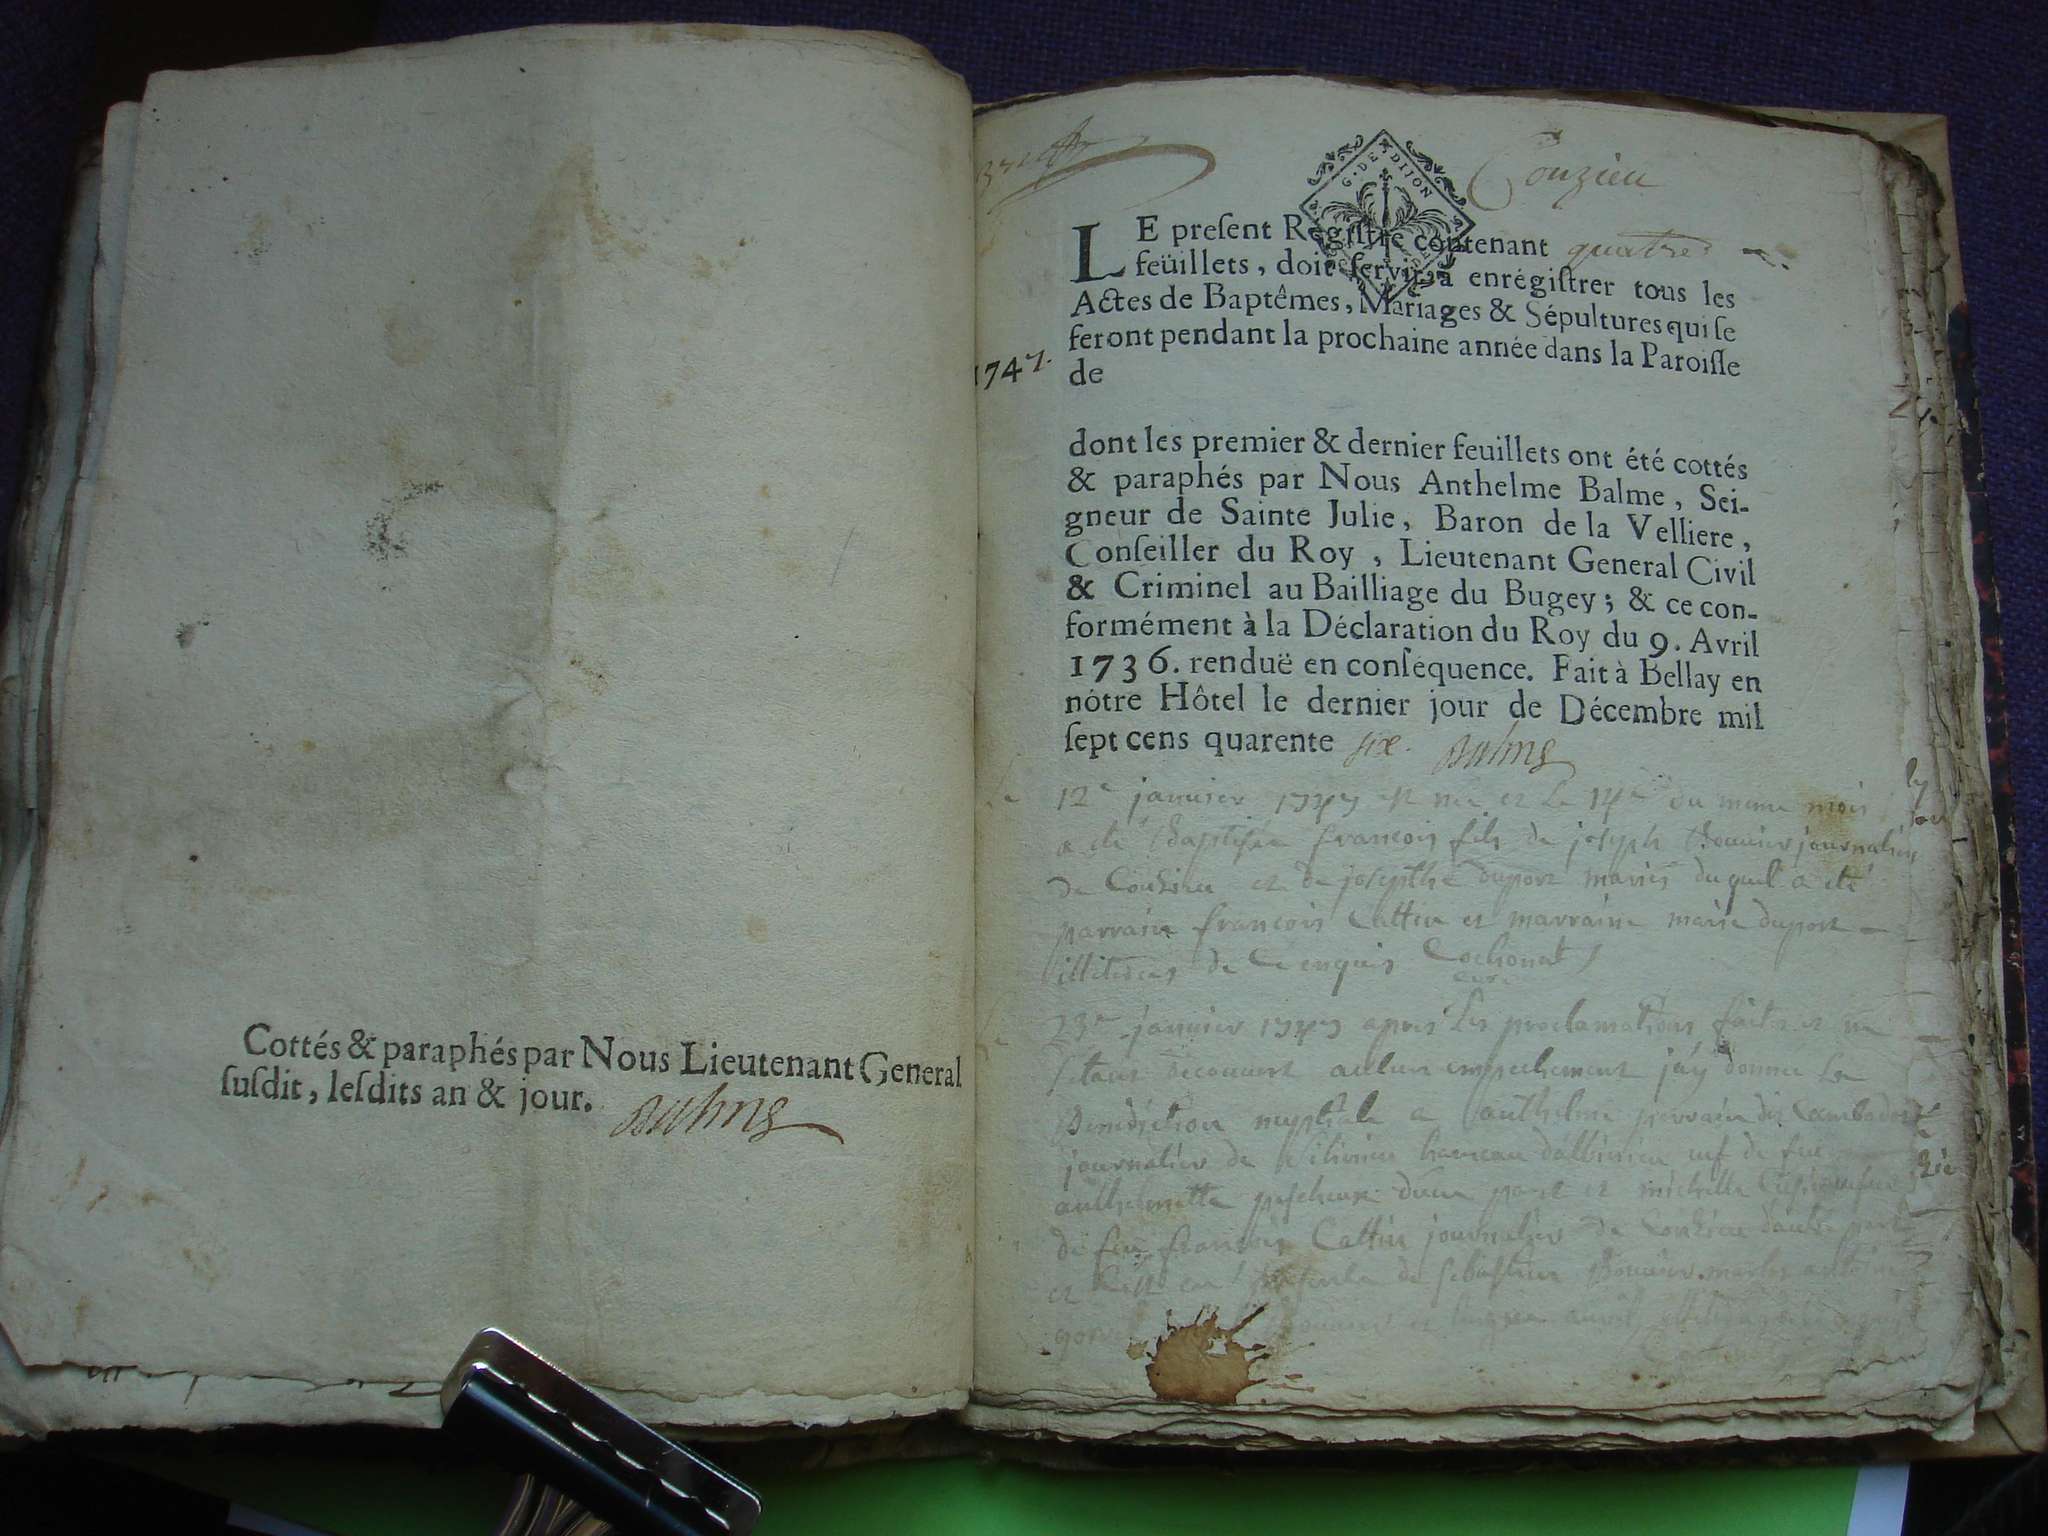 Cottés & paraphés par Nous Lieutenant General
ſuſdit, leſdits an & jour. Balme
Couzieu
G. DE DIJON
LE preſent Régiſtre contenant quatre
feüillets, doit ſervir à enrégiſtrer tous les
Actes de Baptêmes, Mariages & Sépultures qui ſe
feront pendant la prochaine année dans la Paroiſſe
1747.
de
dont les premier & dernier feuillets ont été cottés
& paraphés par Nous Anthelme Balme, Sei-
gneur de Sainte Julie, Baron de la Velliere,
Conſeiller du Roy, Lieutenant General Civil
& Criminel au Bailliage du Bugey; & ce con-
formément à la Déclaration du Roy du 9. Avril
1736. renduë en conſéquence. Fait à Bellay en
nôtre Hôtel le dernier jour de Décembre mil
ſept cens quarente six. Balme
Le 12e janvier 1747 est né et le 14e du meme mois
a été Baptisé francois fils de joseph Bonnier journalier
de Couzieu et de josepthe duport mariés duquel a été
parrain francois Cattin et marraine marie duport
illiteres de ce enquis Cochonat
curé
Le 23e janvier 1747 apres les proclamations faites et ne
s'etant decouvert aucun empechement j'ay donné la
Benediction nuptiale a anthelme perrain dit
journalier de hameau d'albinieu de feu
anthelmette d'une part et michelle
de feu francois Cattin journalier de Couzieu d'autre part
et en presence de sebastien Bonnier